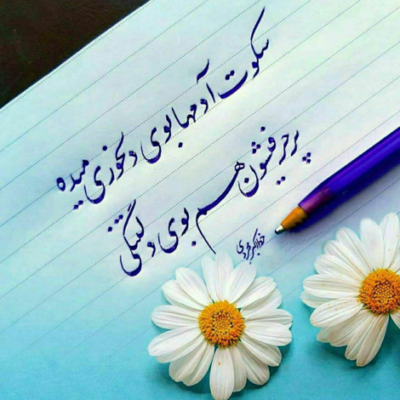 سکوت آدمها بوی دلخوری میده
پرحرفیشون هم بوی دلتنگی